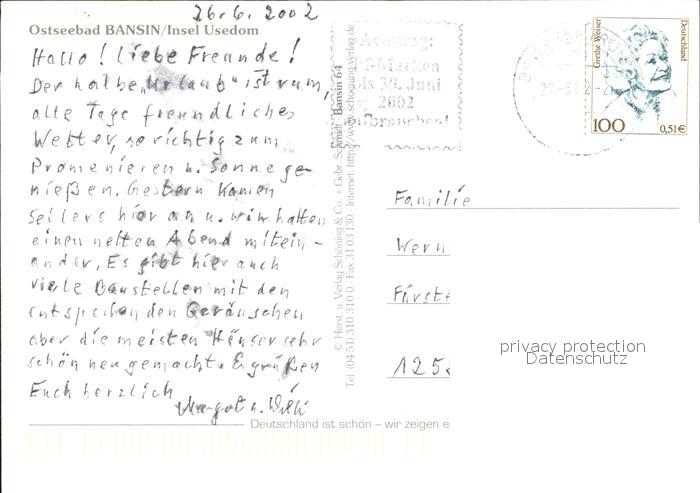 26.6.2002
Ostseebad BANSIN/Insel Usedom
Hallo! Liebe Freunde!
Der halbe „Urlaub" ist rum,
alle Tage freundliches
Wetter, so richtig zum
Promenieren u. Sonne ge-
nießen. Gestern kamen
Seilers hier an u. wir hatten
einen netten Abend mitein-
ander. Es gibt hier auch
viele Baustellen mit den
entsprechenden Geräuschen
aber die meisten Häuser sehr
schön neu gemacht. Es grüßen
Euch herzlich
Margot u. Willi
Deutschland ist schön – wir zeigen e
© Herst. u. Verlag Schöning & Co. + Gebr. Schmidt
Bansin 64
Tel. (04 51) 310 310 0 · Fax 31 03 130 · Internet: http://www.schoening-verlag.de
Achtung:
-Marken
bis 30. Juni
2002
Grethe Weiser
Deutschland
100
0,51€
Familie
Wern
Fürste
125
privacy protection
Datenschutz